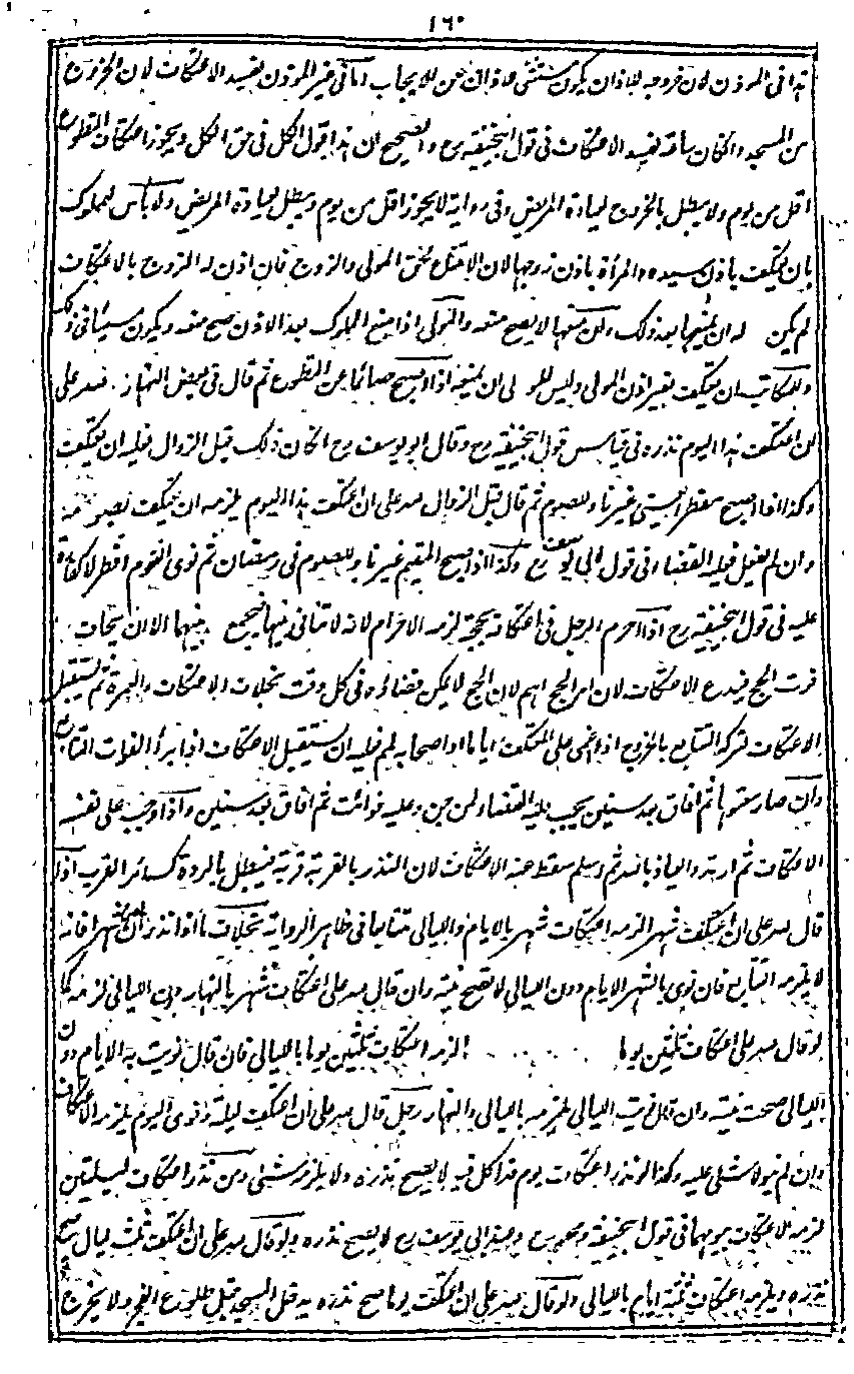 ١٦٠
هذا فى الموذن لان خروجه للاذان يكون مستثنى عن الايجاب اما فى غير الموذن يفسد الاعتكاف لان الخروج
من المسجد وان كان ساعة يفسد الاعتكاف فى قول ابيحنيفة رح والصحيح ان هذا قول الكل فى حق الكل ويجوز اعتكاف التطوع
اقل من يوم ولا يبطل بالخروج لعيادة المريض وفى رواية لا يجوز اقل من يوم ويبطل لعيادة المريض ولا باس للمملوك
بان يعتكف باذن سيده والمرأة باذن زوجها لان الامتناع لحق المولى والزوج فان اذن له الزوج بالاعتكاف
لم يكن له ان يمنعها بعد ذلك وان منعها لا يصح منعه والمولى اذا منع المملوك بعد الاذن صح منعه ويكون مسيئا فى ذلك
وللمكاتب ان يعتكف بغير اذن المولى وليس للمولى ان يمنعه اذا اصبح صائما عن التطوع ثم قال فى بعض النهار لله على
ان اعتكف هذا اليوم نذره فى قياس قول ابيحنيفة رح وقال ابو يوسف رح ان كان ذلك قبل الزوال فعليه ان يعتكف
وكذا اذا اصبح مفطرا غير ناو للصوم ثم قال قبل الزوال لله على ان اعتكف هذا اليوم يلزمه ان يعتكف بصوم
وان لم يفعل فعليه القضاء فى قول ابى يوسف رح وكذا اذا اصبح المقيم غير ناو للصوم فى رمضان ثم نوى الصوم افطر لا كفارة
عليه فى قول ابيحنيفة رح اذا احرم الرجل فى اعتكافه بحجة لزمه الاحرام لانه لا تنافى بينهما فيجمع بينهما الا ان يخاف
فوت الحج فيدع الاعتكاف لان امر الحج اهم لان الحج لا يمكن قضاؤه فى كل وقت بخلاف الاعتكاف والعمرة ثم يستقبل
الاعتكاف لتركه التتابع بالخروج اذا اغمى على المعتكف اياما او اصابه لمم فعليه ان يستقبل الاعتكاف اذا برأ لفوات التتابع
وان صار معتوها ثم افاق بعد سنين يجب عليه القضاء كمن جن وعليه فوائت ثم افاق بعد سنين واذا اوجب على نفسه
الاعتكاف ثم ارتد والعياذ بالله ثم اسلم سقط عنه الاعتكاف لان النذر بالقربة قربة فيبطل بالردة كسائر القرب اذا
قال لله على ان اعتكف شهرا لزمه اعتكاف شهر بالايام والليالى متتابعا فى ظاهر الرواية بخلاف ما اذا نذر ان يصوم شهرا فانه
لا يلزمه التتابع فان نوى بالشهر الايام دون الليالى لا تصح نيته وان قال لله على اعتكاف شهر بالنهار دون الليالى لزمه كما
لو قال لله على اعتكاف ثلثين يوما لزمه اعتكاف ثلثين يوما بالليالى فان قال نويت به الايام دون
الليالى صحت نيته وان قال نويت الليالى يلزمه بالليالى والنهار رجل قال لله على ان اعتكف ليلة ونوى اليوم يلزمه الاعتكاف
وان لم ينو لا شئ عليه وكذا لو نذر اعتكاف يوم قد اكل فيه لا يصح نذره ولا يلزمه شئ ومن نذر اعتكاف ليلتين
لزمه الاعتكاف بيوميهما فى قول ابيحنيفة ومحمد رح وعند ابى يوسف رح لا يصح نذره ولو قال لله على ان اعتكف ثلث ليال صح
نذره ويلزمه اعتكاف ثلثة ايام بالليالى ولو قال لله على ان اعتكف يوما صح نذره يدخل المسجد قبل طلوع الفجر ولا يخرج